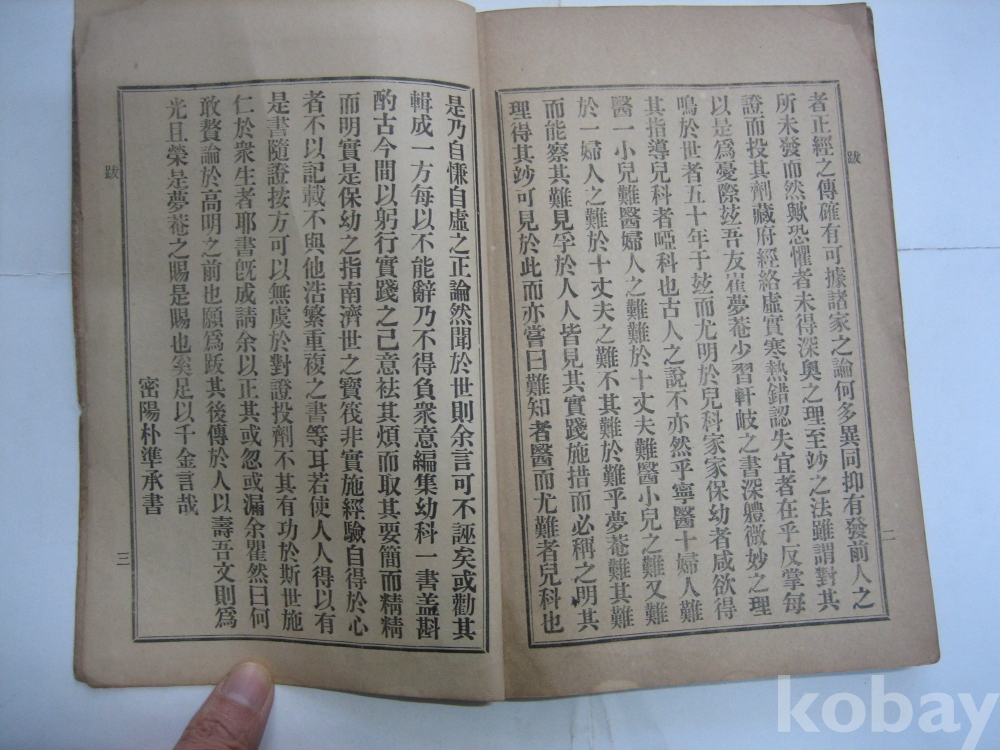 跋
者正經之傳確有可據諸家之論何多異同抑有發前人之
所未發而然歟恐懼者未得深奧之理至妙之法雖謂對其
證而投其劑藏府經絡虛實寒熱錯認失宜者在乎反掌每
以是爲憂際玆吾友崔夢菴少習軒岐之書深軆微妙之理
鳴於世者五十年于玆而尤明於兒科家家保幼者咸欲得
其指導兒科者啞科也古人之說不亦然乎寧醫十婦人難
醫一小兒難醫婦人之難難於十丈夫難醫小兒之難又難
於一婦人之難於十丈夫之難不其難於難乎夢菴難其難
而能察其難見孚於人人皆見其實踐施措而必稱之明其
理得其玅可見於此而亦嘗曰難知者醫而尤難者兒科也
二
跋
是乃自慊自虛之正論然聞於世則余言可不誣矣或勸其
輯成一方每以不能辭乃不得負衆意編集幼科一書盖斟
酌古今間以躬行實踐之己意袪其煩而取其要簡而精精
而明實是保幼之指南濟世之寶筏非實施經驗自得於心
者不以記載不與他浩繁重複之書等耳若使人人得以有
是書隨證按方可以無虞於對證投劑不其有功於斯世施
仁於衆生者耶書旣成請余以正其或忽或漏余瞿然曰何
敢贅論於高明之前也願爲跋其後傳於人以壽吾文則爲
光且榮是夢菴之賜是賜也奚足以千金言哉
密陽朴準承書
三
kobay